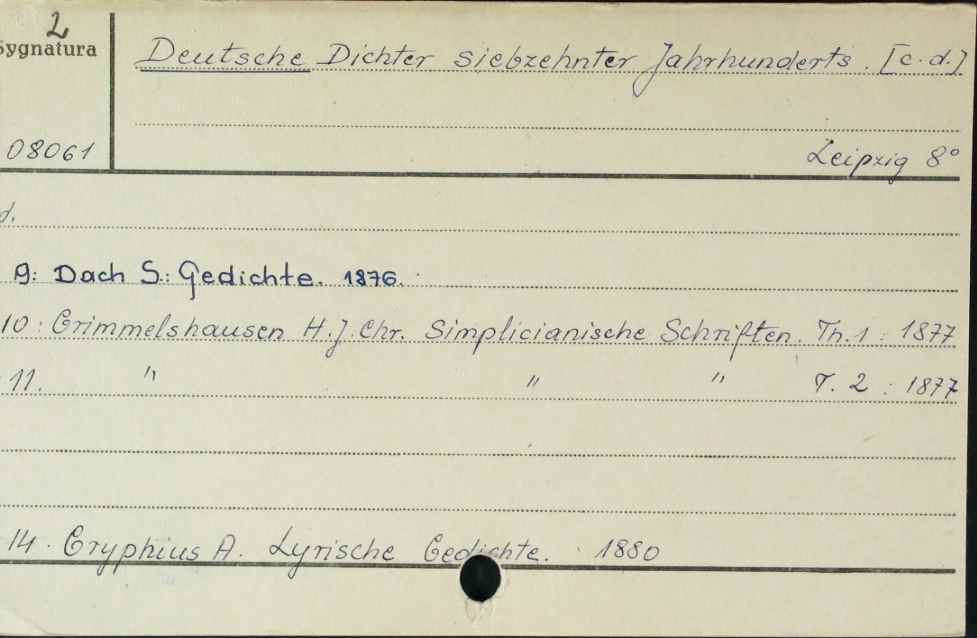 2
Sygnatura
Deutsche Dichter siebzehnter Jahrhunderts. [c.d.]
08061
Leipzig 8°
d.
9: Dach S.: Gedichte. 1876.
10: Grimmelshausen H.J. Chr. Simplicianische Schriften. Th.1: 1877
11. " " " T. 2: 1877
14. Gryphius A. Lyrische Gedichte. 1880